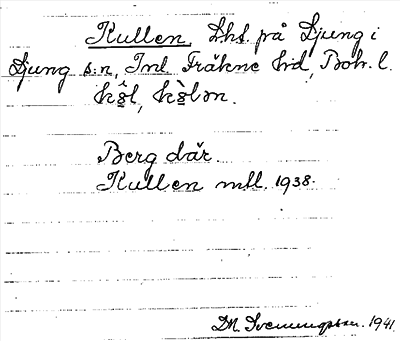 Kullen, Lht. på Ljung i
Ljung s:n, Inl. Fräkne hd, Boh. l.
Berg där.
Kullen mtl. 1938.
D.M. Svenungsson. 1941.